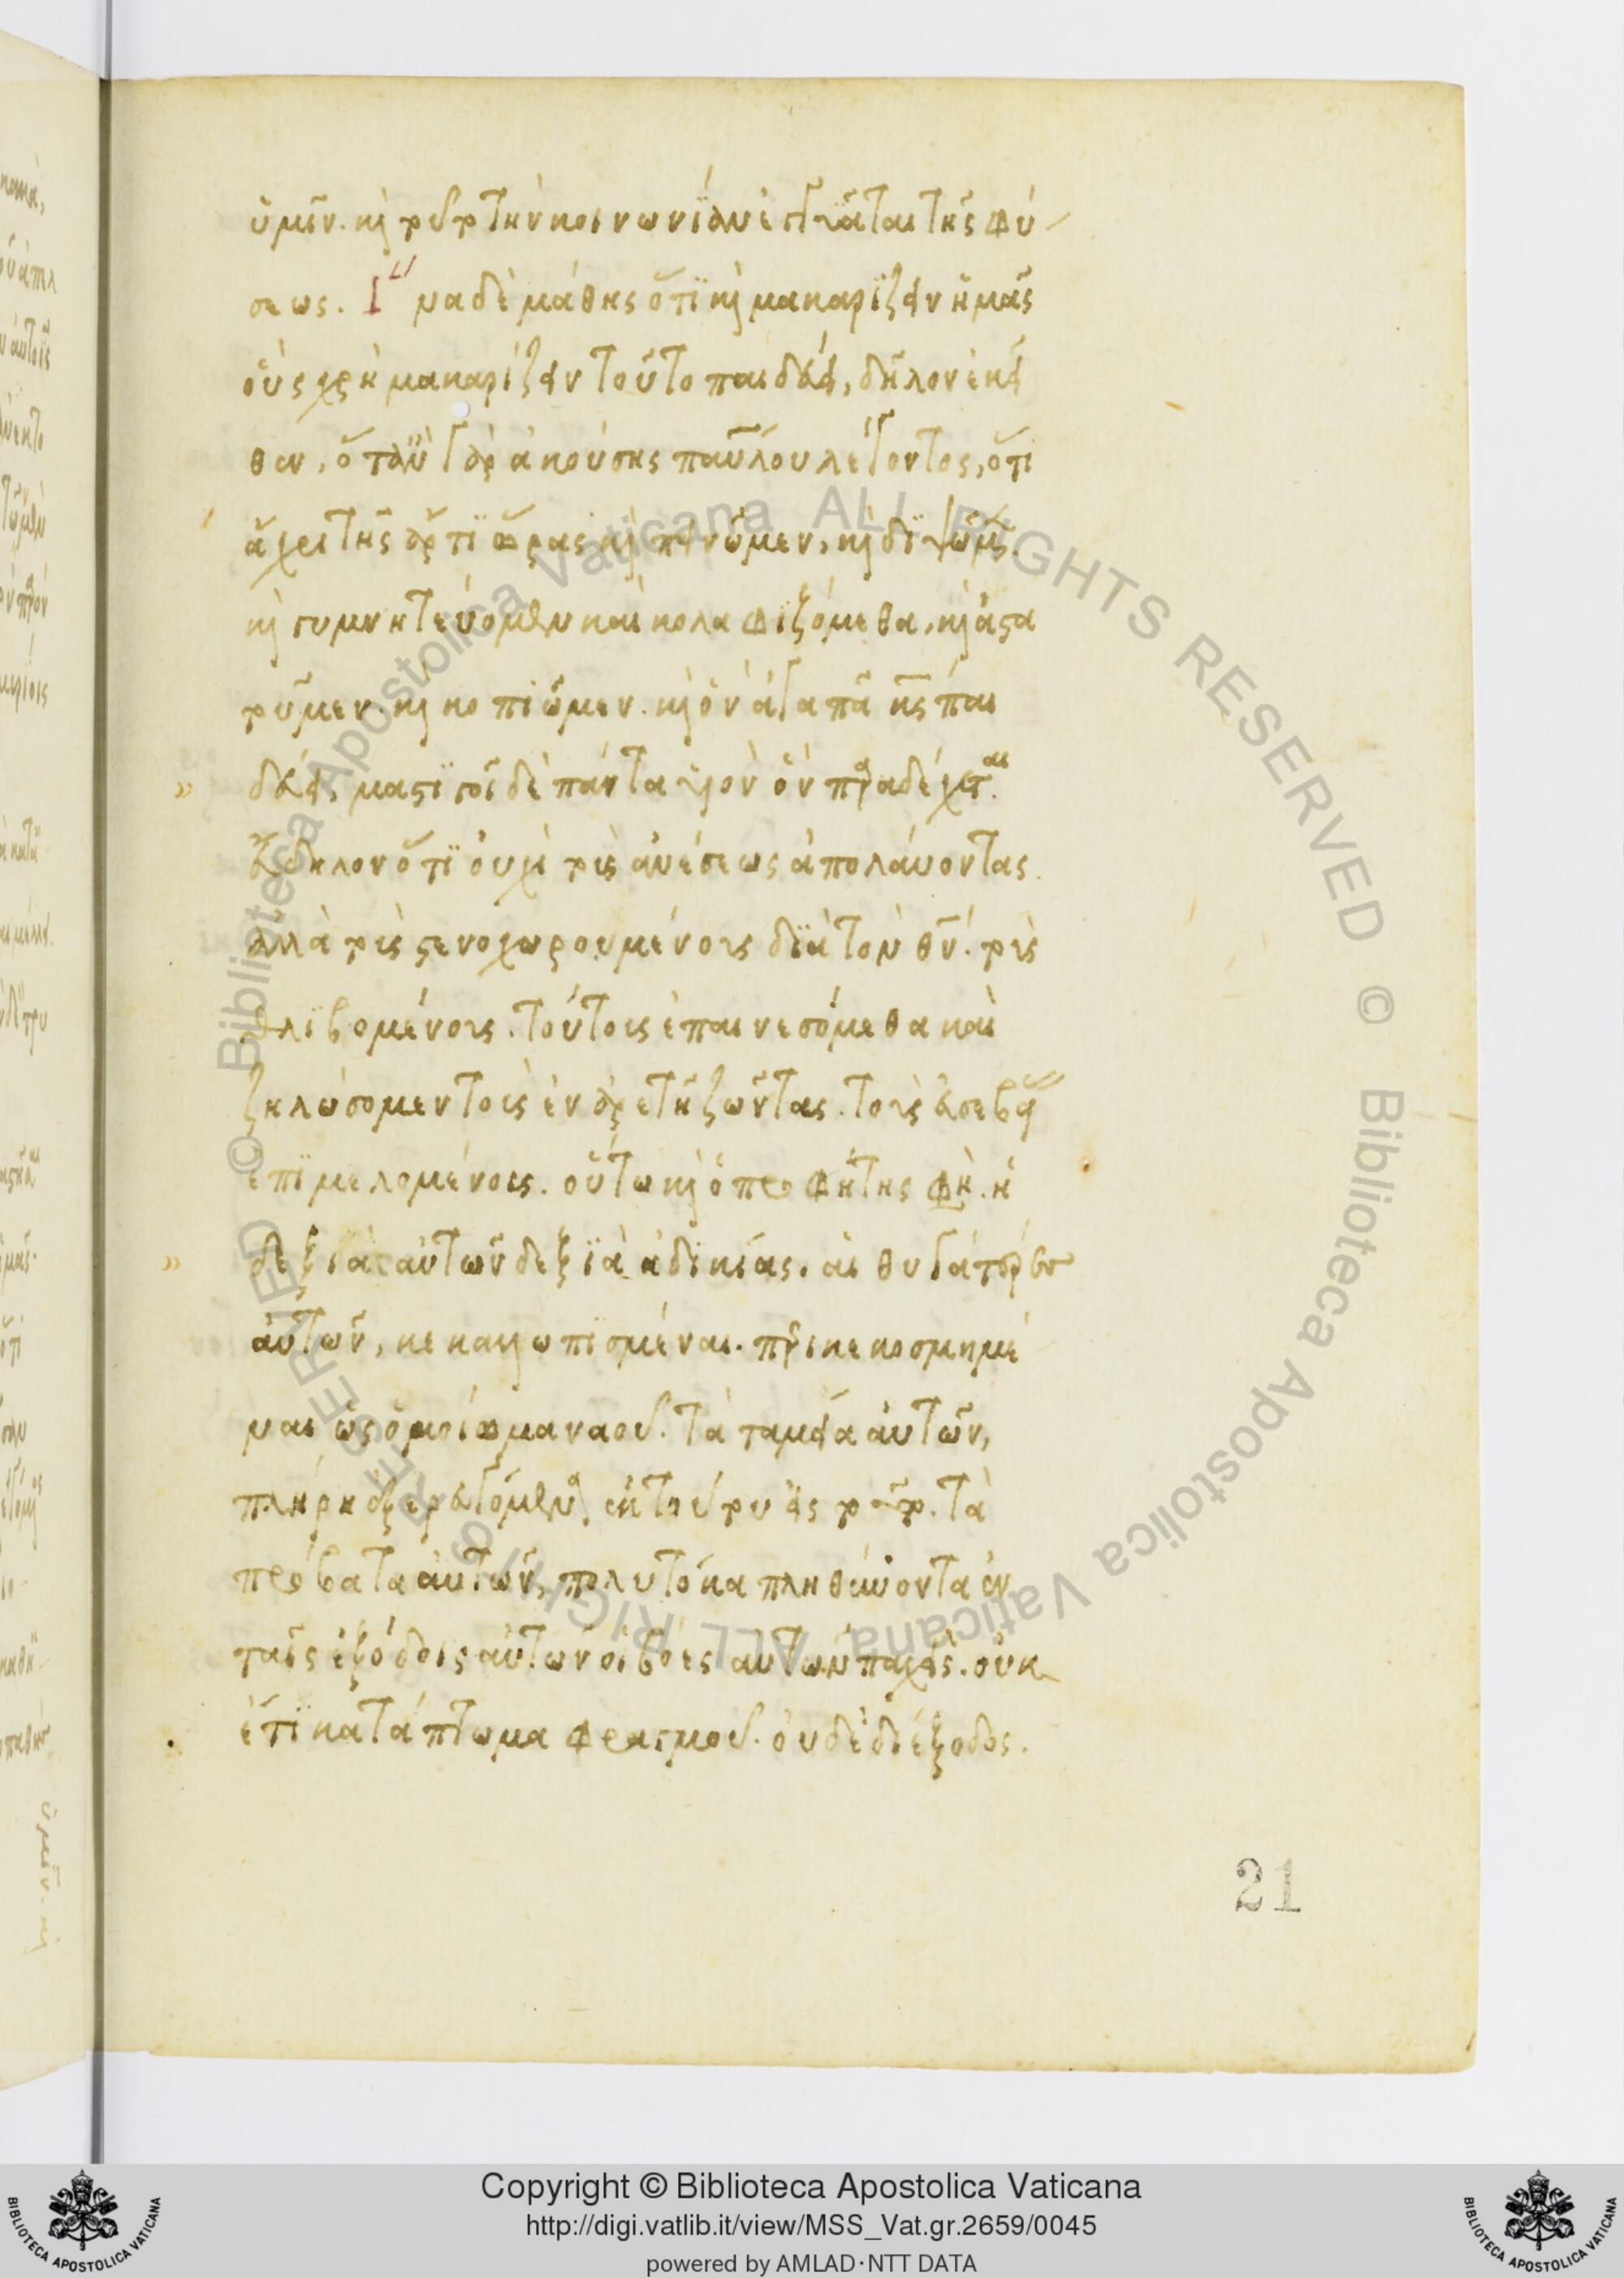 ὑμῖν. κὶ πρὸς τὴν κοινωνίαν ἐπιγᾶται τῆς φύ
σεως. Ἵνα δὲ μάθης ὅτι κὶ μακαρίζειν ἡμᾶς
οὓς χρὴ μακαρίζειν τοῦτο παιδεύει, δῆλον ἐκεῖ
θεν, ὅταν γὰρ ἀκούσης παύλου λέγοντος, ὅτι
ἄχρι τῆς ἄρτι ὥρας κὶ πεινῶμεν, κὶ διψῶμεν.
κὶ γυμνητεύομεν καὶ κολαφιζόμεθα, κὶ ἀστα
τοῦμεν. κὶ κοπιῶμεν. κὶ ὃν ἀγαπᾶ κς παι
δεύει, μαστιγοῖ δὲ πάντα υἱὸν ὃν παραδέχεται.
εὔδηλον ὅτι οὐχὶ τοὺς ἀνέσεως ἀπολάυοντας.
ἀλλὰ τοὺς στενοχωρουμένους διὰ τὸν θν. τοὺς
θλιβομένους. τούτους ἐπαινεσόμεθα καὶ
ζηλώσομεν τοὺς ἐν ἀρετῆ ζῶντας. τοὺς εὐσεβεία
ἐπιμελομένους. οὕτω κὶ ὁ προφήτης φη. ἡ
δεξιὰ αὐτῶν δεξιὰ ἀδικίας. αἱ θυγατέρες
αὐτῶν, κεκαλλωπισμέναι. περικεκοσμημέ
ναι ὡς ὁμοίωμα ναοῦ. τὰ ταμεῖα αὐτῶν,
πλήρη ἐξερευγόμενα ἐκ τούτου εἰς τοῦτο. τὰ
πρόβατα αὐτῶν, πολυτόκα πληθύνοντα ἐν
ταῖς ἐξόδοις αὐτῶν οἱ βόες αὐτῶν παχεῖς. οὐκ
ἔτι κατάπτωμα φραγμοῦ. οὐδὲ διέξοδος.
21
Copyright © Biblioteca Apostolica Vaticana
http://digi.vatlib.it/view/MSS_Vat.gr.2659/0045
powered by AMLAD·NTT DATA
BIBLIOTECA APOSTOLICA VATICANA
BIBLIOTECA APOSTOLICA VATICANA
© Biblioteca Apostolica Vaticana ALL RIGHTS RESERVED © Biblioteca Apostolica Vaticana ALL RIGHTS RESERVED